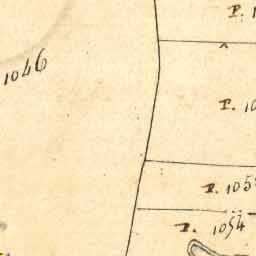 P.
1046
P. 10
P. 105
P. 1054